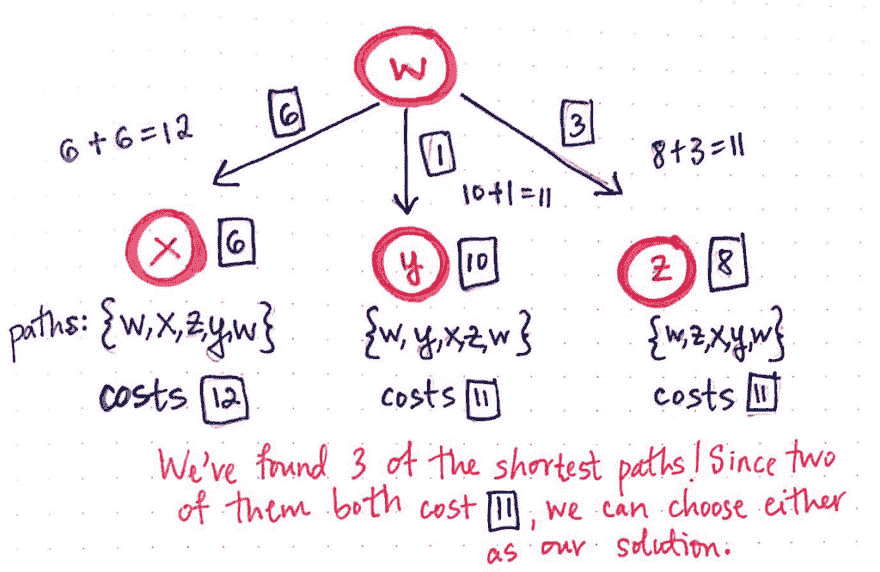 w
6
3
6+6=12
1
8+3=11
10+1=11
x
6
y
10
z
8
paths: {w,x,z,y,w}
{w,y,x,z,w}
{w,z,x,y,w}
costs 12
costs 11
costs 11
We've found 3 of the shortest paths! Since two
of them both cost 11, we can choose either
as our solution.